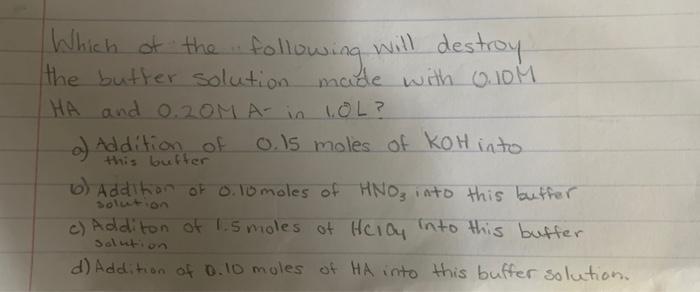 Which of the following will destroy
the buffer solution made with 0.10M
HA and 0.20M A- in 1.0L?
a) Addition of 0.15 moles of KOH into
this buffer
b) Addition of 0.10 moles of HNO3 into this buffer
solution
c) Additon of 1.5 moles of HClO4 into this buffer
solution
d) Addition of 0.10 moles of HA into this buffer solution.